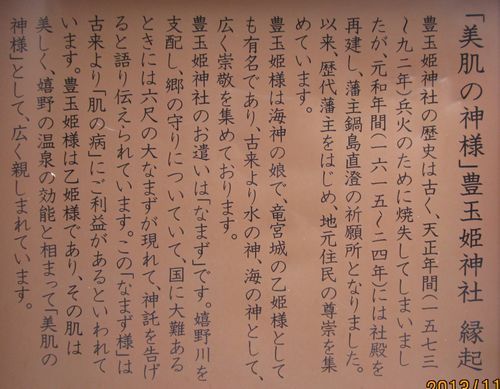 「美肌の神様」豊玉姫神社 縁起
豊玉姫神社の歴史は古く、天正年間(一五七三
～九二年)兵火のために焼失してしまいまし
たが、元和年間(一六一五～二四年)には社殿を
再建し、藩主鍋島直澄の祈願所となりました。
以来、歴代藩主をはじめ、地元住民の尊崇を集
めています。
豊玉姫様は海神の娘で、竜宮城の乙姫様として
も有名であり、古来より水の神、海の神として、
広く崇敬を集めております。
豊玉姫神社のお遣いは「なまず」です。嬉野川を
支配し、郷の守りについていて、国に大難ある
ときには六尺の大なまずが現れて、神託を告げ
ると語り伝えられています。この「なまず様」は
古来より「肌の病」にご利益があるといわれて
います。豊玉姫様は乙姫様であり、その肌は
美しく、嬉野の温泉の効能と相まって「美肌の
神様」として、広く親しまれています。
2013/11